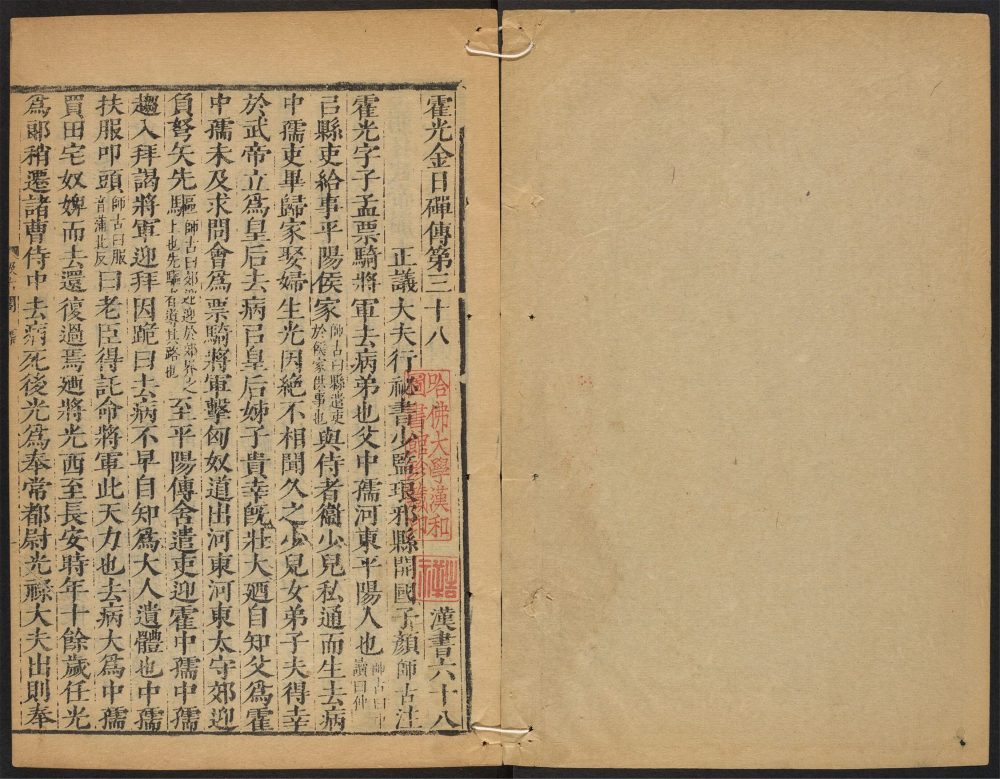 霍光金日磾傳第三十八 漢書六十八
正議大夫行祕書少監琅邪縣開國子顏師古注
霍光字子孟票騎將軍去病弟也父中孺河東平陽人也師古曰中讀曰仲
吕縣吏給事平陽侯家師古曰縣遣吏於侯家供事也與侍者衞少兒私通而生去病
中孺吏畢歸家娶婦生光因絶不相聞久之少兒女弟子夫得幸
於武帝立爲皇后去病吕皇后姊子貴幸旣壯大廼自知父爲霍
中孺未及求問會爲票騎將軍擊匈奴道出河東河東太守郊迎
負弩矢先驅師古曰郊迎迎於郊界之上也先驅者導其路也至平陽傳舍遣吏迎霍中孺中孺
趨入拜謁將軍迎拜因跪曰去病不早自知爲大人遺體也中孺
扶服叩頭師古曰服音蒲北反曰老臣得託命將軍此天力也去病大爲中孺
買田宅奴婢而去還復過焉廼將光西至長安時年十餘歲任光
爲郎稍遷諸曹侍中去病死後光爲奉常都尉光祿大夫出則奉
哈佛大學漢和圖書館珍藏印